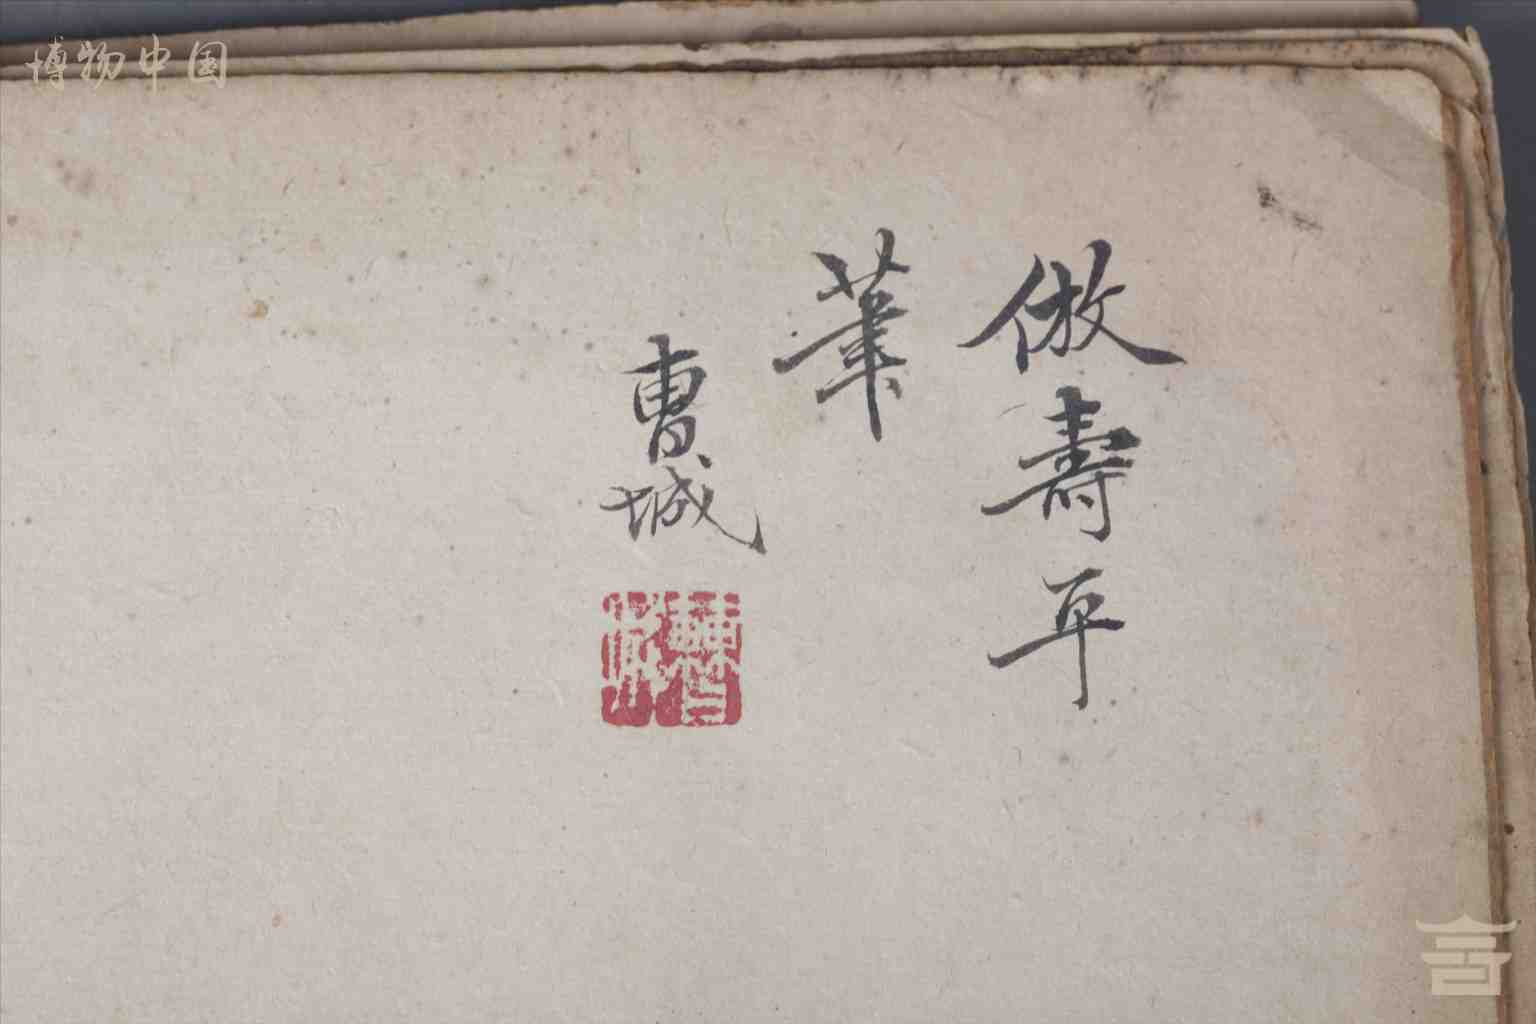 博物中国
倣壽平
筆
曹城